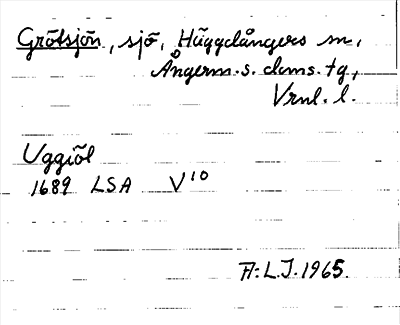 Grötsjön, sjö, Häggdångers sn,
Ångerm. s. dms. tg,
Vrnl. l.
Uggiöl
1689 LSA V¹⁰
A:L.J. 1965.